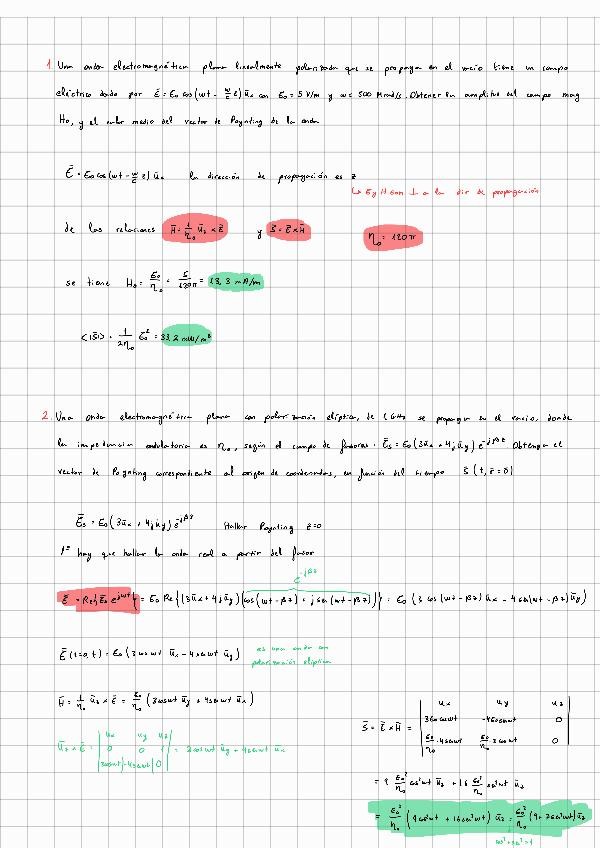 1. Una onda electromagnética plana linealmente polarizada que se propaga en el vacío tiene un campo
eléctrico dado por Ē = E₀ cos(wt - w/c z) ūx con E₀ = 5 V/m y w = 500 Mrad/s. Obtener la amplitud del campo mag
H₀, y el valor medio del vector de Poynting de la onda
Ē = E₀ cos(wt - w/c z) ūx la dirección de propagación es z
↳ E y H son ⊥ a la dir de propagación
de las relaciones H̄ = 1/η₀ ūz × Ē y S̄ = Ē × H̄ η₀ = 120π
se tiene H₀ = E₀/η₀ = 5/120π = 13,3 mA/m
<|S̄|> = 1/2η₀ E₀² = 33,2 mW/m²
2. Una onda electromagnética plana con polarización elíptica, de 1 GHz se propaga en el vacío, donde
la impedancia ondulatoria es η₀, según el campo de fasores: Ēs = E₀(3ūx + 4jūy) e^-jβz Obtenga el
vector de Poynting correspondiente al origen de coordenadas, en función del tiempo S(t, r̄=0)
Ēs = E₀(3ūx + 4jūy) e^-jβz Hallar Poynting z=0
1º hay que hallar la onda real a partir del fasor
e^-jβz
Ē = Re{Ēs e^jwt} = E₀ Re{(3ūx + 4jūy)(cos(wt - βz) + j sen(wt - βz))} = E₀ (3 cos(wt - βz) ūx - 4 sen(wt - βz) ūy)
Ē(z=0, t) = E₀(3 coswt ūx - 4 senwt ūy) es una onda con
polarización elíptica
H̄ = 1/η₀ ūz × Ē = E₀/η₀ (3 coswt ūy + 4 senwt ūx)
ūz × Ē = | ux uy uz | 0 0 1 | 3coswt -4senwt 0 | = 3 coswt ūy + 4 senwt ūx
S̄ = Ē × H̄ = | ux uy uz |
3E₀ coswt -4E₀ senwt 0
E₀/η₀ · 4 senwt E₀/η₀ · 3 coswt 0
= 9 E₀²/η₀ cos²wt ūz + 16 E₀²/η₀ sen²wt ūz
= E₀²/η₀ (9 cos²wt + 16 sen²wt) ūz = E₀²/η₀ (9 + 7 sen²wt) ūz
cos² + sen² = 1